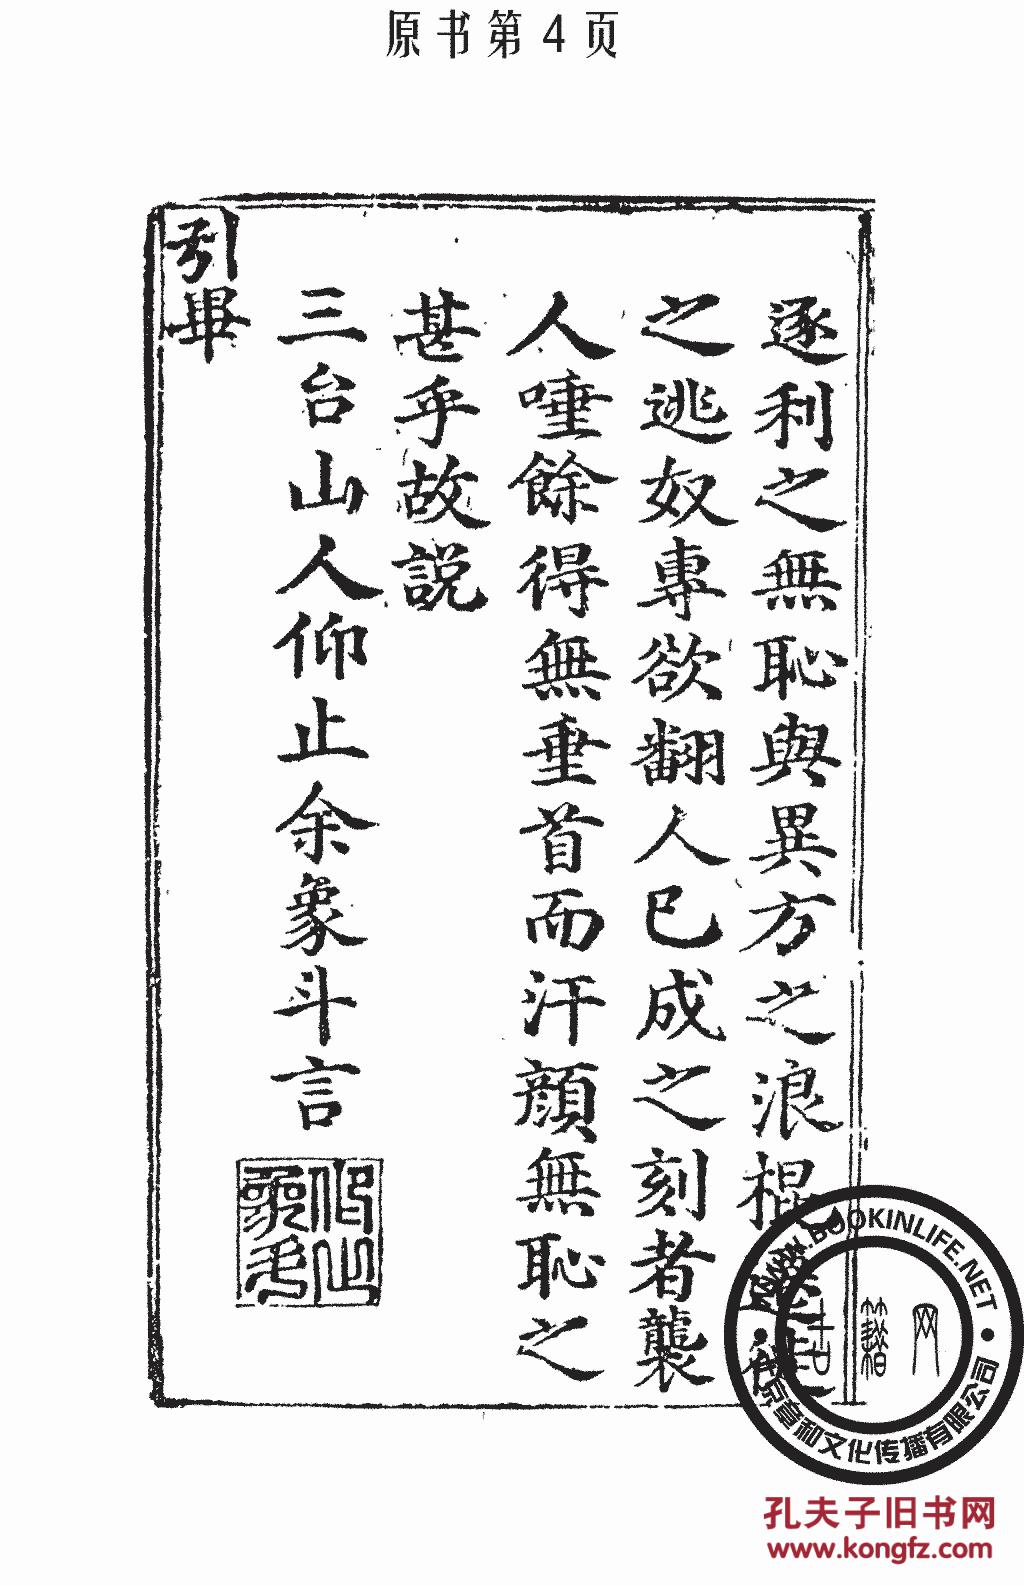 原书第4页
逐利之無恥與異方之浪棍遷徙
之逃奴專欲翻人已成之刻者襲
人唾餘得無垂首而汗顔無恥之
甚乎故説
三台山人仰止余象斗言
引畢
WWW.BOOKINLIFE.NET
古籍网
京章和文化传播有限公司
孔夫子旧书网
www.kongfz.com